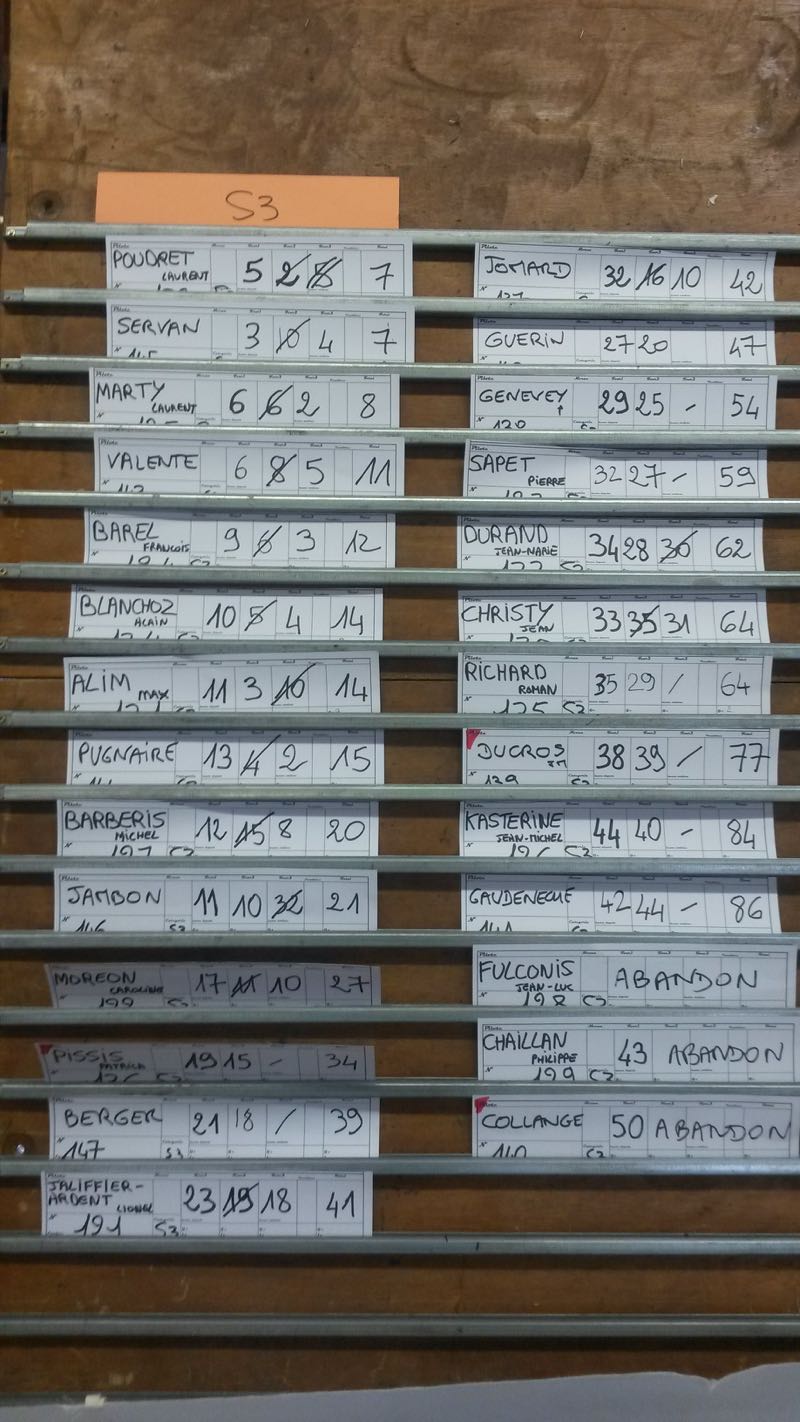 S3
POUDRET 5 2 8 7
LAURENT
SERVAN 3 10 4 7
MARTY 6 6 2 8
LAURENT
VALENTE 6 8 5 11
BAREL 9 6 3 12
FRANCOIS
BLANCHOZ 10 5 4 14
ALAIN
ALIM 11 3 10 14
MAX
PUGNAIRE 13 4 2 15
BARBERIS 12 15 8 20
MICHEL
JAMBON 11 10 32 21
146 S3
MOREON 17 11 10 27
CAROLINE
199 S3
PISSIS 19 15 - 34
PATRICK
BERGER 21 18 / 39
147 S3
JALIFFIER- 23 19 18 41
ARDENT LIONEL
191 S3
JOMARD 32 16 10 42
GUERIN 27 20 47
GENEVEY 29 25 - 54
120
SAPET 32 27 - 59
PIERRE
DURAND 34 28 30 62
JEAN-MARIE
CHRISTY 33 35 31 64
JEAN
RICHARD 35 29 / 64
ROMAN
125 S3
DUCROS 38 39 / 77
129
KASTERINE 44 40 - 84
JEAN-MICHEL
GAUDENECHE 42 44 - 86
FULCONIS ABANDON
JEAN-LUC
198 S3
CHAILLAN 43 ABANDON
PHILIPPE
199
COLLANGE 50 ABANDON
140